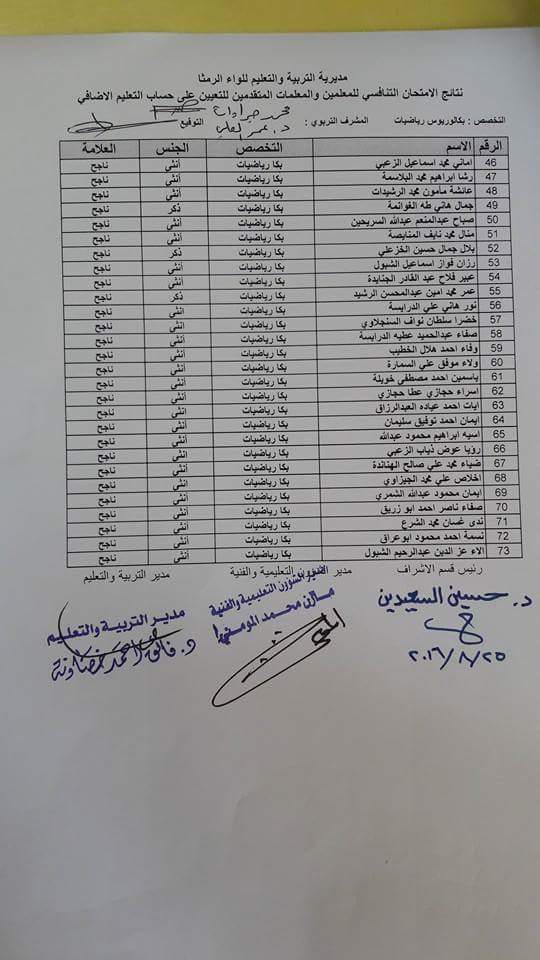 مديرية التربية والتعليم للواء الرمثا
نتائج الامتحان التنافسي للمعلمين والمعلمات المتقدمين للتعيين على حساب التعليم الاضافي
التخصص : بكالوريوس رياضيات المشرف التربوي : محمد التوقيع
د. عمر
الرقم الاسم التخصص الجنس العلامة
46 اماني محمد اسماعيل الزعبي بكا رياضيات أنثى ناجح
47 رشا ابراهيم محمد البلاسمة بكا رياضيات أنثى ناجح
48 عائشة مأمون محمد الرشيدات بكا رياضيات أنثى ناجح
49 جمال هاني طه الغوانمة بكا رياضيات ذكر ناجح
50 صباح عبدالمنعم عبدالله السريحين بكا رياضيات أنثى ناجح
51 منال محمد نايف المنابصة بكا رياضيات أنثى ناجح
52 بلال جمال حسين الخزعلي بكا رياضيات ذكر ناجح
53 رزان فواز اسماعيل الشبول بكا رياضيات أنثى ناجح
54 عبير فلاح عبد القادر الجنايدة بكا رياضيات أنثى ناجح
55 عمر محمد امين عبدالمحسن الرشيد بكا رياضيات ذكر ناجح
56 نور هاني علي الدرايسة بكا رياضيات انثى ناجح
57 خضرا سلطان نواف السنجلاوي بكا رياضيات انثى ناجح
58 صفاء عبدالحميد عطيه الدرابسة بكا رياضيات انثى ناجح
59 وفاء احمد هلال الخطيب بكا رياضيات انثى ناجح
60 ولاء موفق علي السمارة بكا رياضيات انثى ناجح
61 ياسمين احمد مصطفى خويلة بكا رياضيات انثى ناجح
62 اسراء حجازي عطا حجازي بكا رياضيات انثى ناجح
63 ايات احمد عياده العبدالرزاق بكا رياضيات انثى ناجح
64 ايمان احمد توفيق سليمان بكا رياضيات انثى ناجح
65 اسيه ابراهيم محمود عبدالله بكا رياضيات انثى ناجح
66 رؤيا عوض ذياب الزعبي بكا رياضيات انثى ناجح
67 ضياء محمد علي صالح الهناندة بكا رياضيات انثى ناجح
68 اخلاص علي محمد الجيزاوي بكا رياضيات انثى ناجح
69 ايمان محمود عبدالله الشمري بكا رياضيات انثى ناجح
70 صفاء ناصر احمد ابو زريق بكا رياضيات انثى ناجح
71 ندى غسان محمد الشرع بكا رياضيات انثى ناجح
72 نسمة احمد محمود ابوعراق بكا رياضيات انثى ناجح
73 الاء عز الدين عبدالرحيم الشبول بكا رياضيات انثى ناجح
رئيس قسم الاشراف مدير الشؤون التعليمية والفنية مدير التربية والتعليم
د. حسين السعيدين مدير الشؤون التعليمية والفنية مدير التربية والتعليم
مازن محمد المومني د. فائق احمد خصاونة
٢٠١٦/٨/٢٥